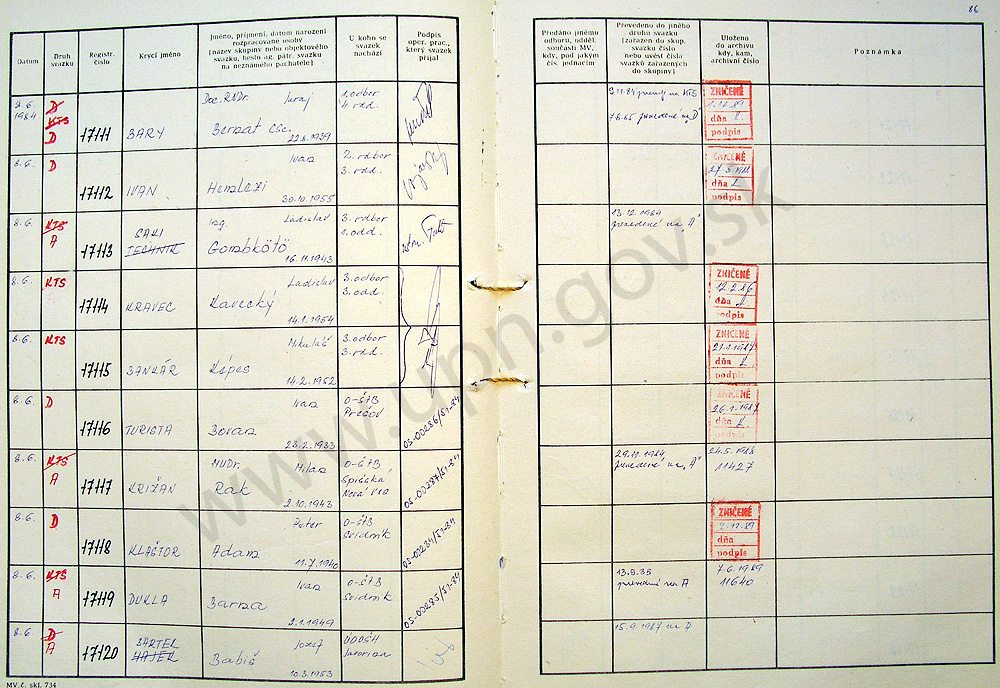 86
Datum
Druh svazku
Registr. číslo
Krycí jméno
Jméno, příjmení, datum narození rozpracované osoby [název skupiny nebo objektového svazku, heslo ag. pátr. svazku na neznámého pachatele]
U koho se svazek nachází
Podpis oper. prac., který svazek přijal
Předáno jinému odboru, odděl. součásti MV, kdy, pod jakým čís. jednacím
Převedeno do jiného druhu svazku [zařazen do skup. svazku číslo nebo uvést čísla svazků zařazených do skupiny]
Uloženo do archivu kdy, kam, archivní číslo
Poznámka
2.6. 1984
D KTS D
17111
BARY
Doc. RNDr. Juraj
Bernát CSc.
22.8.1939
1. odbor
4. odd.
ZNIČENÉ
dňa
podpis
8.6.
D
17112
IVAN
Ivan
30.10.1955
2. odbor
3. odd.
ZNIČENÉ
dňa
podpis
8.6.
KTS A
17113
SAKI
TECHNIK
Ing. Ladislav
Gombkötö
16.11.1943
3. odbor
1. odd.
13.12.1984
prevedené na "A"
8.6.
KTS
17114
KRAVEC
Ladislav
Kavecký
14.1.1954
3. odbor
3. odd.
ZNIČENÉ
12.2.86
dňa
podpis
8.6.
KTS
17115
JANKÁR
Mikuláš
Képes
14.2.1952
3. odbor
3. odd.
ZNIČENÉ
21.1.1987
dňa
podpis
8.6.
D
17116
TURISTA
Ivan
23.2.1933
O-ŠTB
Prešov
OS-00286/51-84
ZNIČENÉ
26.1.1987
dňa
podpis
8.6.
KTS A
17117
KRIŽAN
MUDr. Milan
Rak
2.10.1943
O-ŠTB
Spišská
Nová Ves
OS-00287/51-84
29.11.1984
prevedené na "A"
24.5.1988
11427
8.6.
D
17118
KLAŠTOR
Peter
Adam
11.7.1940
O-ŠTB
Svidník
OS-00284/51-84
ZNIČENÉ
dňa
podpis
8.6.
KTS A
17119
DUKLA
Ivan
Barna
2.1.1949
O-ŠTB
Svidník
OS-00285/51-84
13.9.85
prevedený na A
7.6.1989
11640
8.6.
D A
17120
BARTEL
HAJEK
Jozef
Babiš
10.3.1953
15.9.1987 na A
MV. č. skl. 734
www.upn.gov.sk